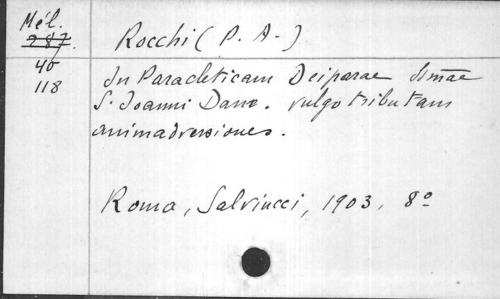 Mél.
287.
40
118
Rocchi (P. A.)
In Paracleticam Deiparae Smae
S. Joanni Dam. vulgo tributam
animadversiones.
Roma, Salviucci, 1903, 8º